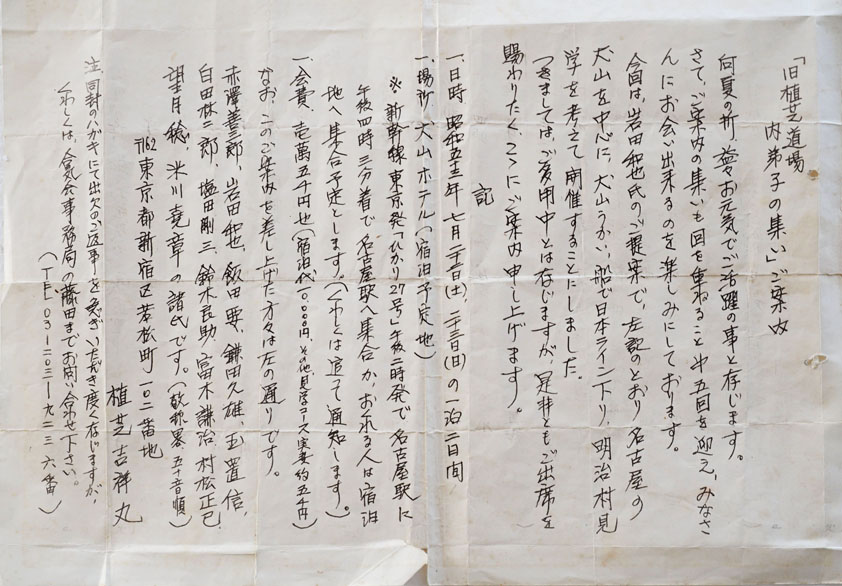 「旧植芝道場
内弟子の集い」ご案内
向夏の折、益々お元気でご活躍の事と存じます。
さて、ご案内の集いも回を重ねること 五回を迎え、みなさ
んにお会い出来るのを楽しみにしております。
今回は、岩田和也氏のご提案で、左記のとおり名古屋の
犬山を中心に、犬山うかい、船で日本ライン下り、明治村見
学を考えて開催することにしました。
つきましては、ご多用中とは存じますが、是非ともご出席を
賜わりたく、ここにご案内申し上げます。
記
一、日時 昭和五十三年七月二十二日(土)、二十三日(日)の一泊二日間
一、場所 犬山ホテル(宿泊予定地)
※新幹線東京発「ひかり27号」午後二時発で名古屋駅に
午後四時三分着で名古屋駅へ集合か、おくれる人は宿泊
地へ集合予定とします。(くわしくは追って通知します。)
一、会費、壱萬五千円也(宿泊代一〇、〇〇〇円、その他見学コース実費約五千円)
なお、このご案内を差し上げた方々は左の通りです。
赤澤善三郎、岩田和也、飯田要、鎌田久雄、玉置信、
白田林二郎、塩田剛三、鈴木良助、富木謙治、村松正己、
望月稔、米川堯章の諸氏です。(敬称略、五十音順)
〒162東京都新宿区若松町一〇二番地
植芝吉祥丸
注 同封のハガキにて出欠のご返事を急ぎいただき度く存じますが、
くわしくは、合気会事務局の藤田までお問い合わせ下さい。
(TEL 〇三-二〇三-九二三六番)